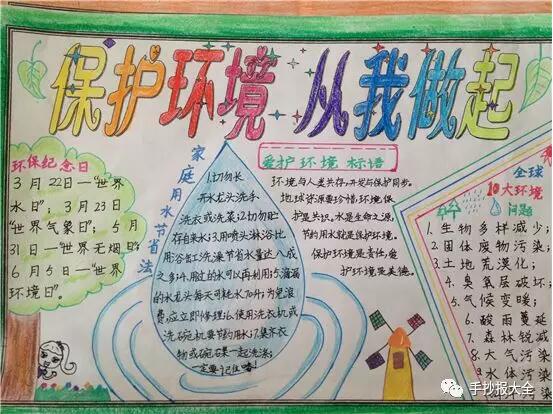 保护环境 从我做起
环保纪念日
3月22日—"世界
水日"；3月23日
"世界气象日"；5月
31日—"世界无烟日"
6月5日—"世界
环境日"。
家庭用水节省法
1.切勿长
开水龙头洗手、
洗衣或洗菜；2.切勿贮
存自来水；3.用喷头淋浴比
用浴缸；洗澡节省水量达八成
之多；4.用过的水可以再利用；5.滴漏
的水龙头每天可耗水70升；为免浪
费，应立即修理；6.使用洗衣机或
洗碗机要节约用水；7.集齐衣
物或碗碟一起洗涤；
一定要记住噢！
爱护环境 标语
环境与人类共存，开发与保护同步。
地球资源要珍惜，环境保
护是共识。水是生命之源，
节约用水就是保护环境。
保护环境是责任，爱
护环境是美德。
全球
10大环境
问题
1.生物多样减少；
2.固体废物污染；
3.土地荒漠化；
4.臭氧层破坏；
5.气候变暖；
6.酸雨蔓延
7.森林锐减
8.大气污染
9.水体污染
手抄报大全